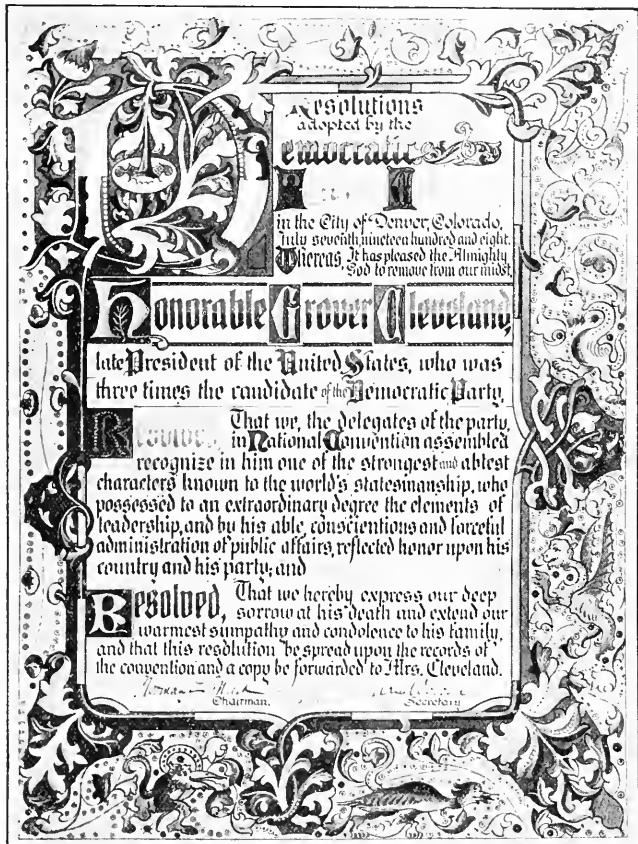 Resolutions
adopted by the
emocratic
in the City of Denver, Colorado,
July seventh, nineteen hundred and eight.
Whereas, It has pleased the Almighty
God to remove from our midst,
Honorable Grover Cleveland,
late President of the United States, who was
three times the candidate of the Democratic Party,
That we, the delegates of the party,
in National Convention assembled
recognize in him one of the strongest and ablest
characters known to the world's statesmanship, who
possessed to an extraordinary degree the elements of
leadership, and by his able, conscientious and forceful
administration of public affairs, reflected honor upon his
country and his party; and
Resolved, That we hereby express our deep
sorrow at his death and extend our
warmest sympathy and condolence to his family,
and that this resolution be spread upon the records of
the convention and a copy be forwarded to Mrs. Cleveland.
Chairman. Secretary